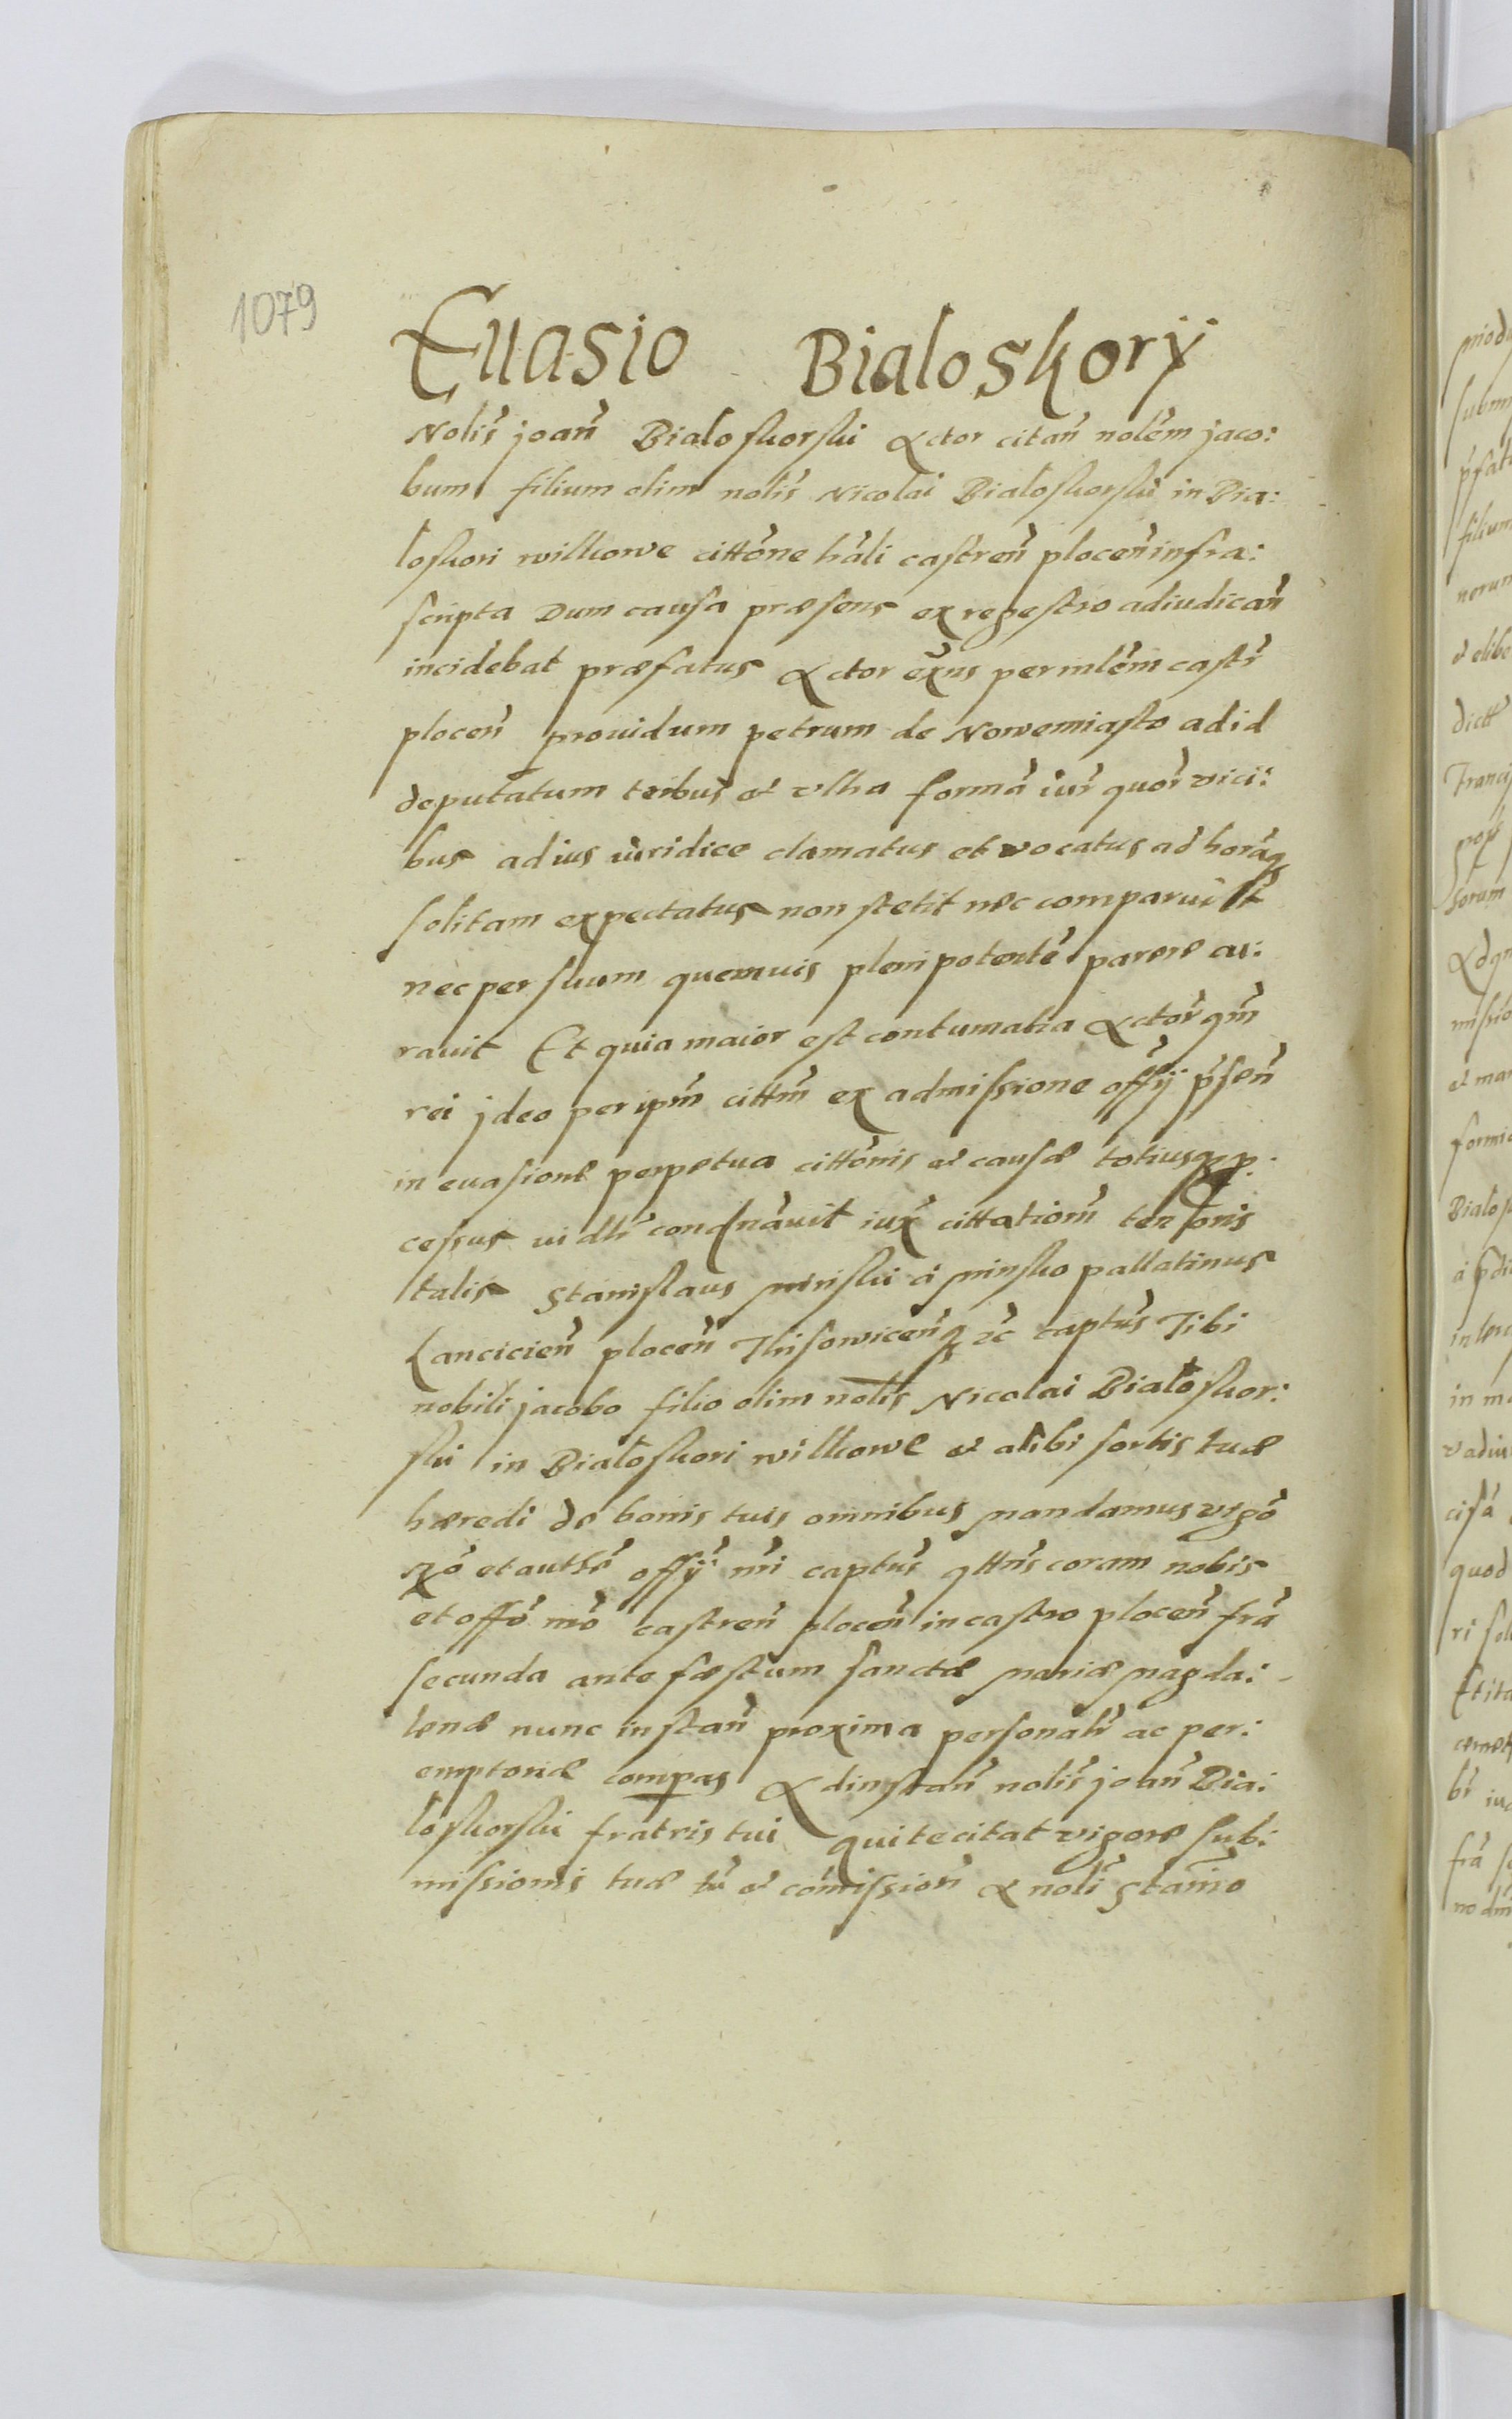 1079
Euasio Bialoskory
Nolis̃ joañ Bialoskorski Actor citañ nolẽm jaco:
bum filium olim nolis̃ Nicolai Bialoskorski in Bia:
loskori wilkowe cittõne hãli castreñ ploceñ infra:
scripta Dum causa præsens ex regestro adiudicañ
incidebat præfatus Actor eius per mlẽm castr̃
ploceñ prouidum petrum de Nowemiasto ad id
deputatum tribus et vlta formã iur̃ quor̃ vici:
bus ad ius iuridice clamatus et vocatus ad horãq
solitam expectatus non stetit nec comparuit
nec per suum quemuis plenipotentẽ parere cu:
rauit Et quia maior est contumatia Actor̃ qm̃
rei jdeo per ipm̃ cittm̃ ex admissione offỹ p̃señ
in euasione perpetua cittõnis et causæ totiusq p:
cessus condñauit iux̃ cittationẽ tenoris
talis Stanislaus minski á minsko pallatinus
Lanciciẽn ploceñ q zc̃ captus̃ Tibi
nobili jacobo filio olim nolis̃ Nicolai Białoskor:
ski in Białoskori wilkowe et alibi sortis tuæ
hæredi de bonis tuis omnibus mandamus vigõ
rõ et authẽ offỹ nr̃i captus̃ qttũs coram nobis
et offõ nr̃o castreñ ploceñ in castro ploceñ frã
secunda ante fæstum sanctæ mariæ magda:
lenæ nunc instañ proxima personalr̃ ac per:
emptoriæ compas Ad instañ nolis̃ joañ Bia:
loskorski fratris tui qui te citat vigore sub:
missionis tuæ et cõmissioñ A nolĩ Stañio